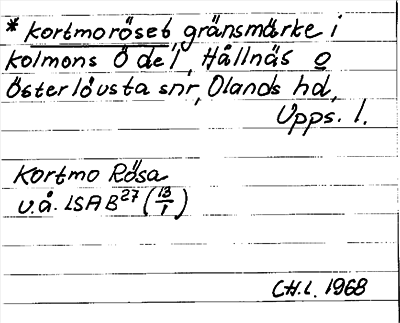 * Kortmoröset gränsmärke i
Kolmons Ödel, Hållnäs o
Österlövsta snr, Olands hd,
Upps. l.
Kortmo Rösa
u.å. LSA B27 (13/1)
C.H.L. 1968